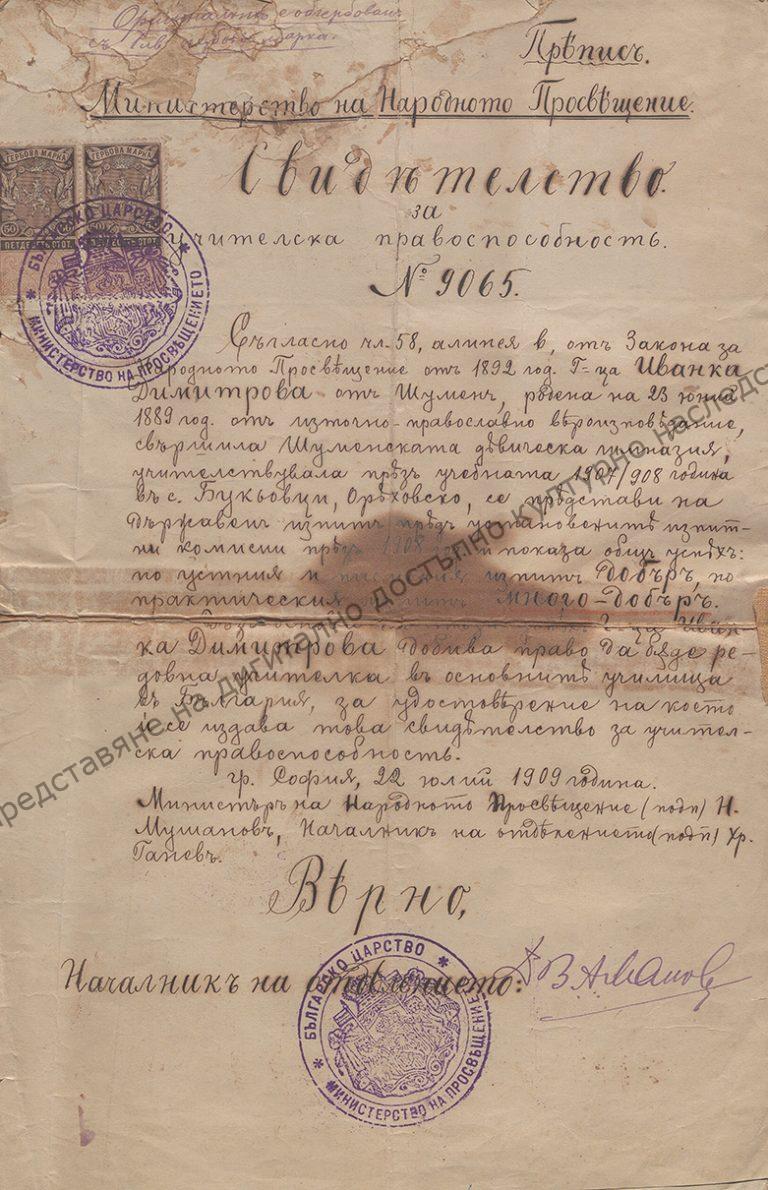 Оригиналътъ е обгербованъ
съ 1 лв. гербова марка.
Прѣписъ.
Министерство на Народното Просвѣщение.
ГЕРБОВА МАРКА ГЕРБОВА МАРКА
50 50
ПЕТДЕСЕТЬ СТОТ.
БЪЛГАРСКО ЦАРСТВО
МИНИСТЕРСТВО НА ПРОСВѢЩЕНИЕТО
Свидѣтелство
за
учителска правоспособность.
№ 9065.
Съгласно чл. 58, алинея в, отъ Закона за
Народното Просвѣщение отъ 1892 год. Г-ца Иванка
Димитрова отъ Шуменъ, родена на 23 юний
1889 год. отъ източно-православно вѣроизповѣдание,
свършила Шуменската дѣвическа гимназия,
учителствувала прѣзъ учебната 1907/908 година
въ с. Букьовци, Орѣховско, се прѣдстави на
държавенъ изпитъ прѣдъ установенитѣ изпит-
ни комисии прѣзъ 1908 и показа общъ успѣхъ:
по устния и писмения изпитъ Добъръ, по
практическия изпитъ много-добъръ.
Г-ца Иван
ка Димитрова добива право да бѫде ре-
довна учителка въ основнитѣ училища
въ България, за удостовѣрение на което
ѝ се издава това свидѣтелство за учител-
ска правоспособность.
гр. София, 22 юлий 1909 година.
Министъръ на Народното Просвѣщение (подп) Н.
Мушановъ, Началникъ на отдѣлението (подп) Хр.
Ганевъ.
Вѣрно,
Началникъ на отдѣлението:
БЪЛГАРСКО ЦАРСТВО
МИНИСТЕРСТВО НА ПРОСВѢЩЕНИЕТО
представяне на дигитално достъпно културно наследств